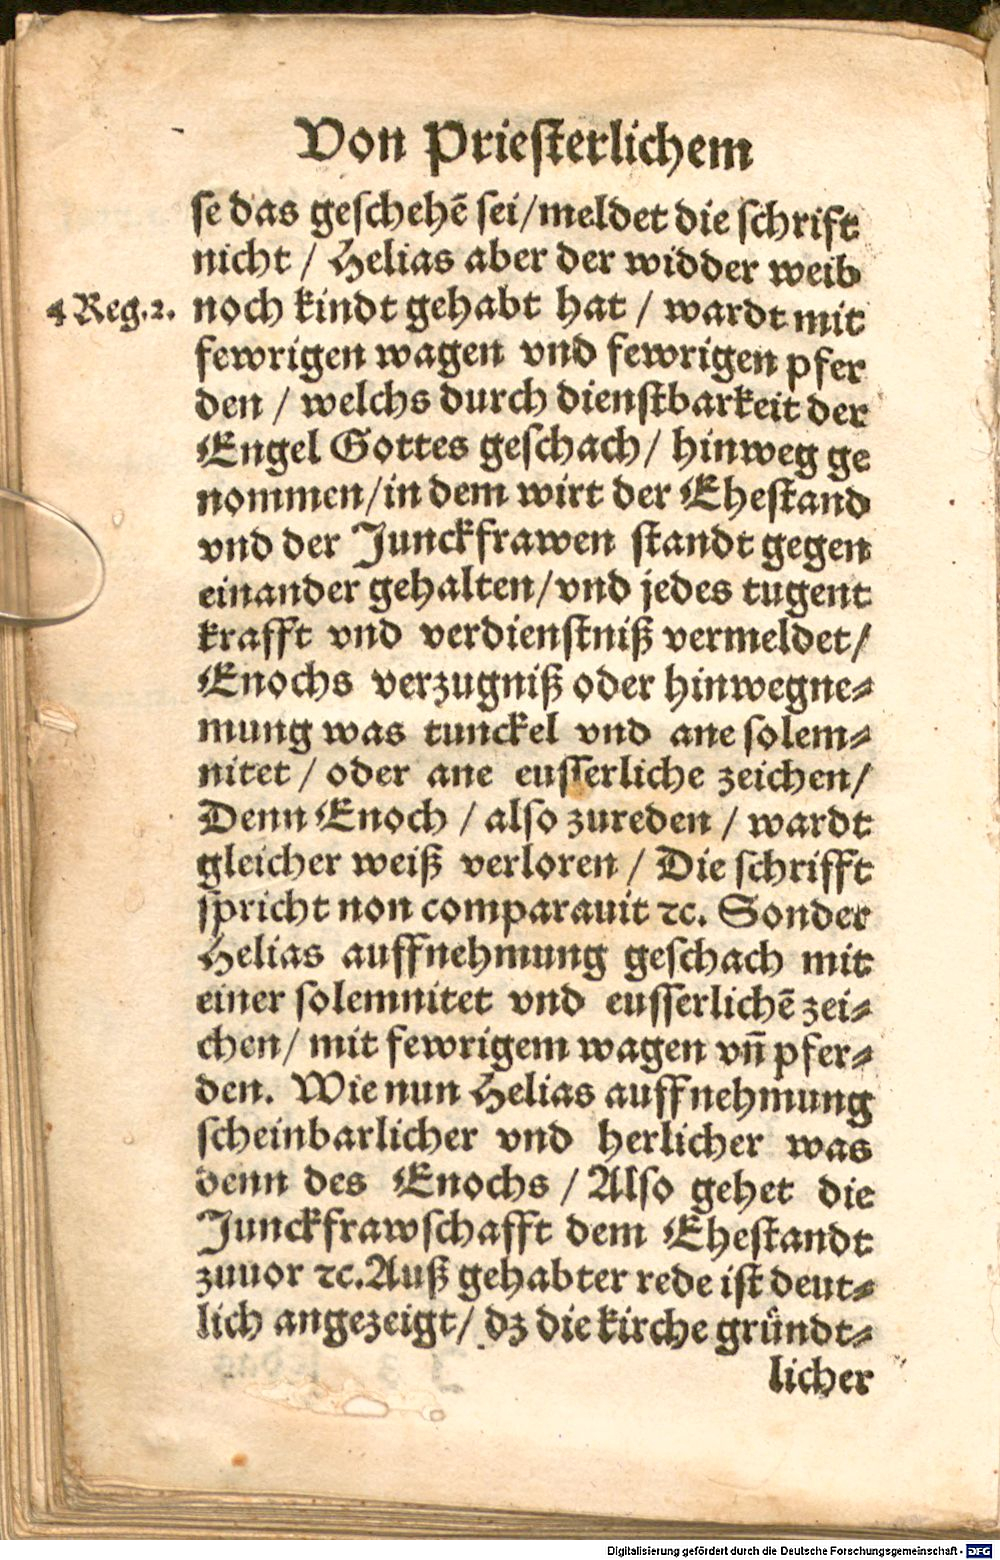 Von Priesterlichem
se das geschehẽ sei/meldet die schrift
nicht / Helias aber der widder weib
4 Reg.2. noch kindt gehabt hat / wardt mit
fewrigen wagen vnd fewrigen pfer
den / welchs durch dienstbarkeit der
Engel Gottes geschach/ hinweg ge
nommen/in dem wirt der Ehestand
vnd der Junckfrawen standt gegen
einander gehalten/vnd jedes tugent
krafft vnd verdienstniß vermeldet/
Enochs verzugniß oder hinwegne-
mung was tunckel vnd ane solem-
nitet / oder ane eusserliche zeichen/
Denn Enoch / also zureden / wardt
gleicher weiß verloren / Die schrifft
spricht non comparauit ꝛc. Sonder
Helias auffnehmung geschach mit
einer solemnitet vnd eusserlichẽ zei-
chen/ mit fewrigem wagen vñ pfer-
den. Wie nun Helias auffnehmung
scheinbarlicher vnd herlicher was
denn des Enochs / Also gehet die
Junckfrawschafft dem Ehestandt
zuuor ꝛc.Auß gehabter rede ist deut-
lich angezeigt/ dz die kirche gründt-
licher
Digitalisierung gefördert durch die Deutsche Forschungsgemeinschaft - DFG